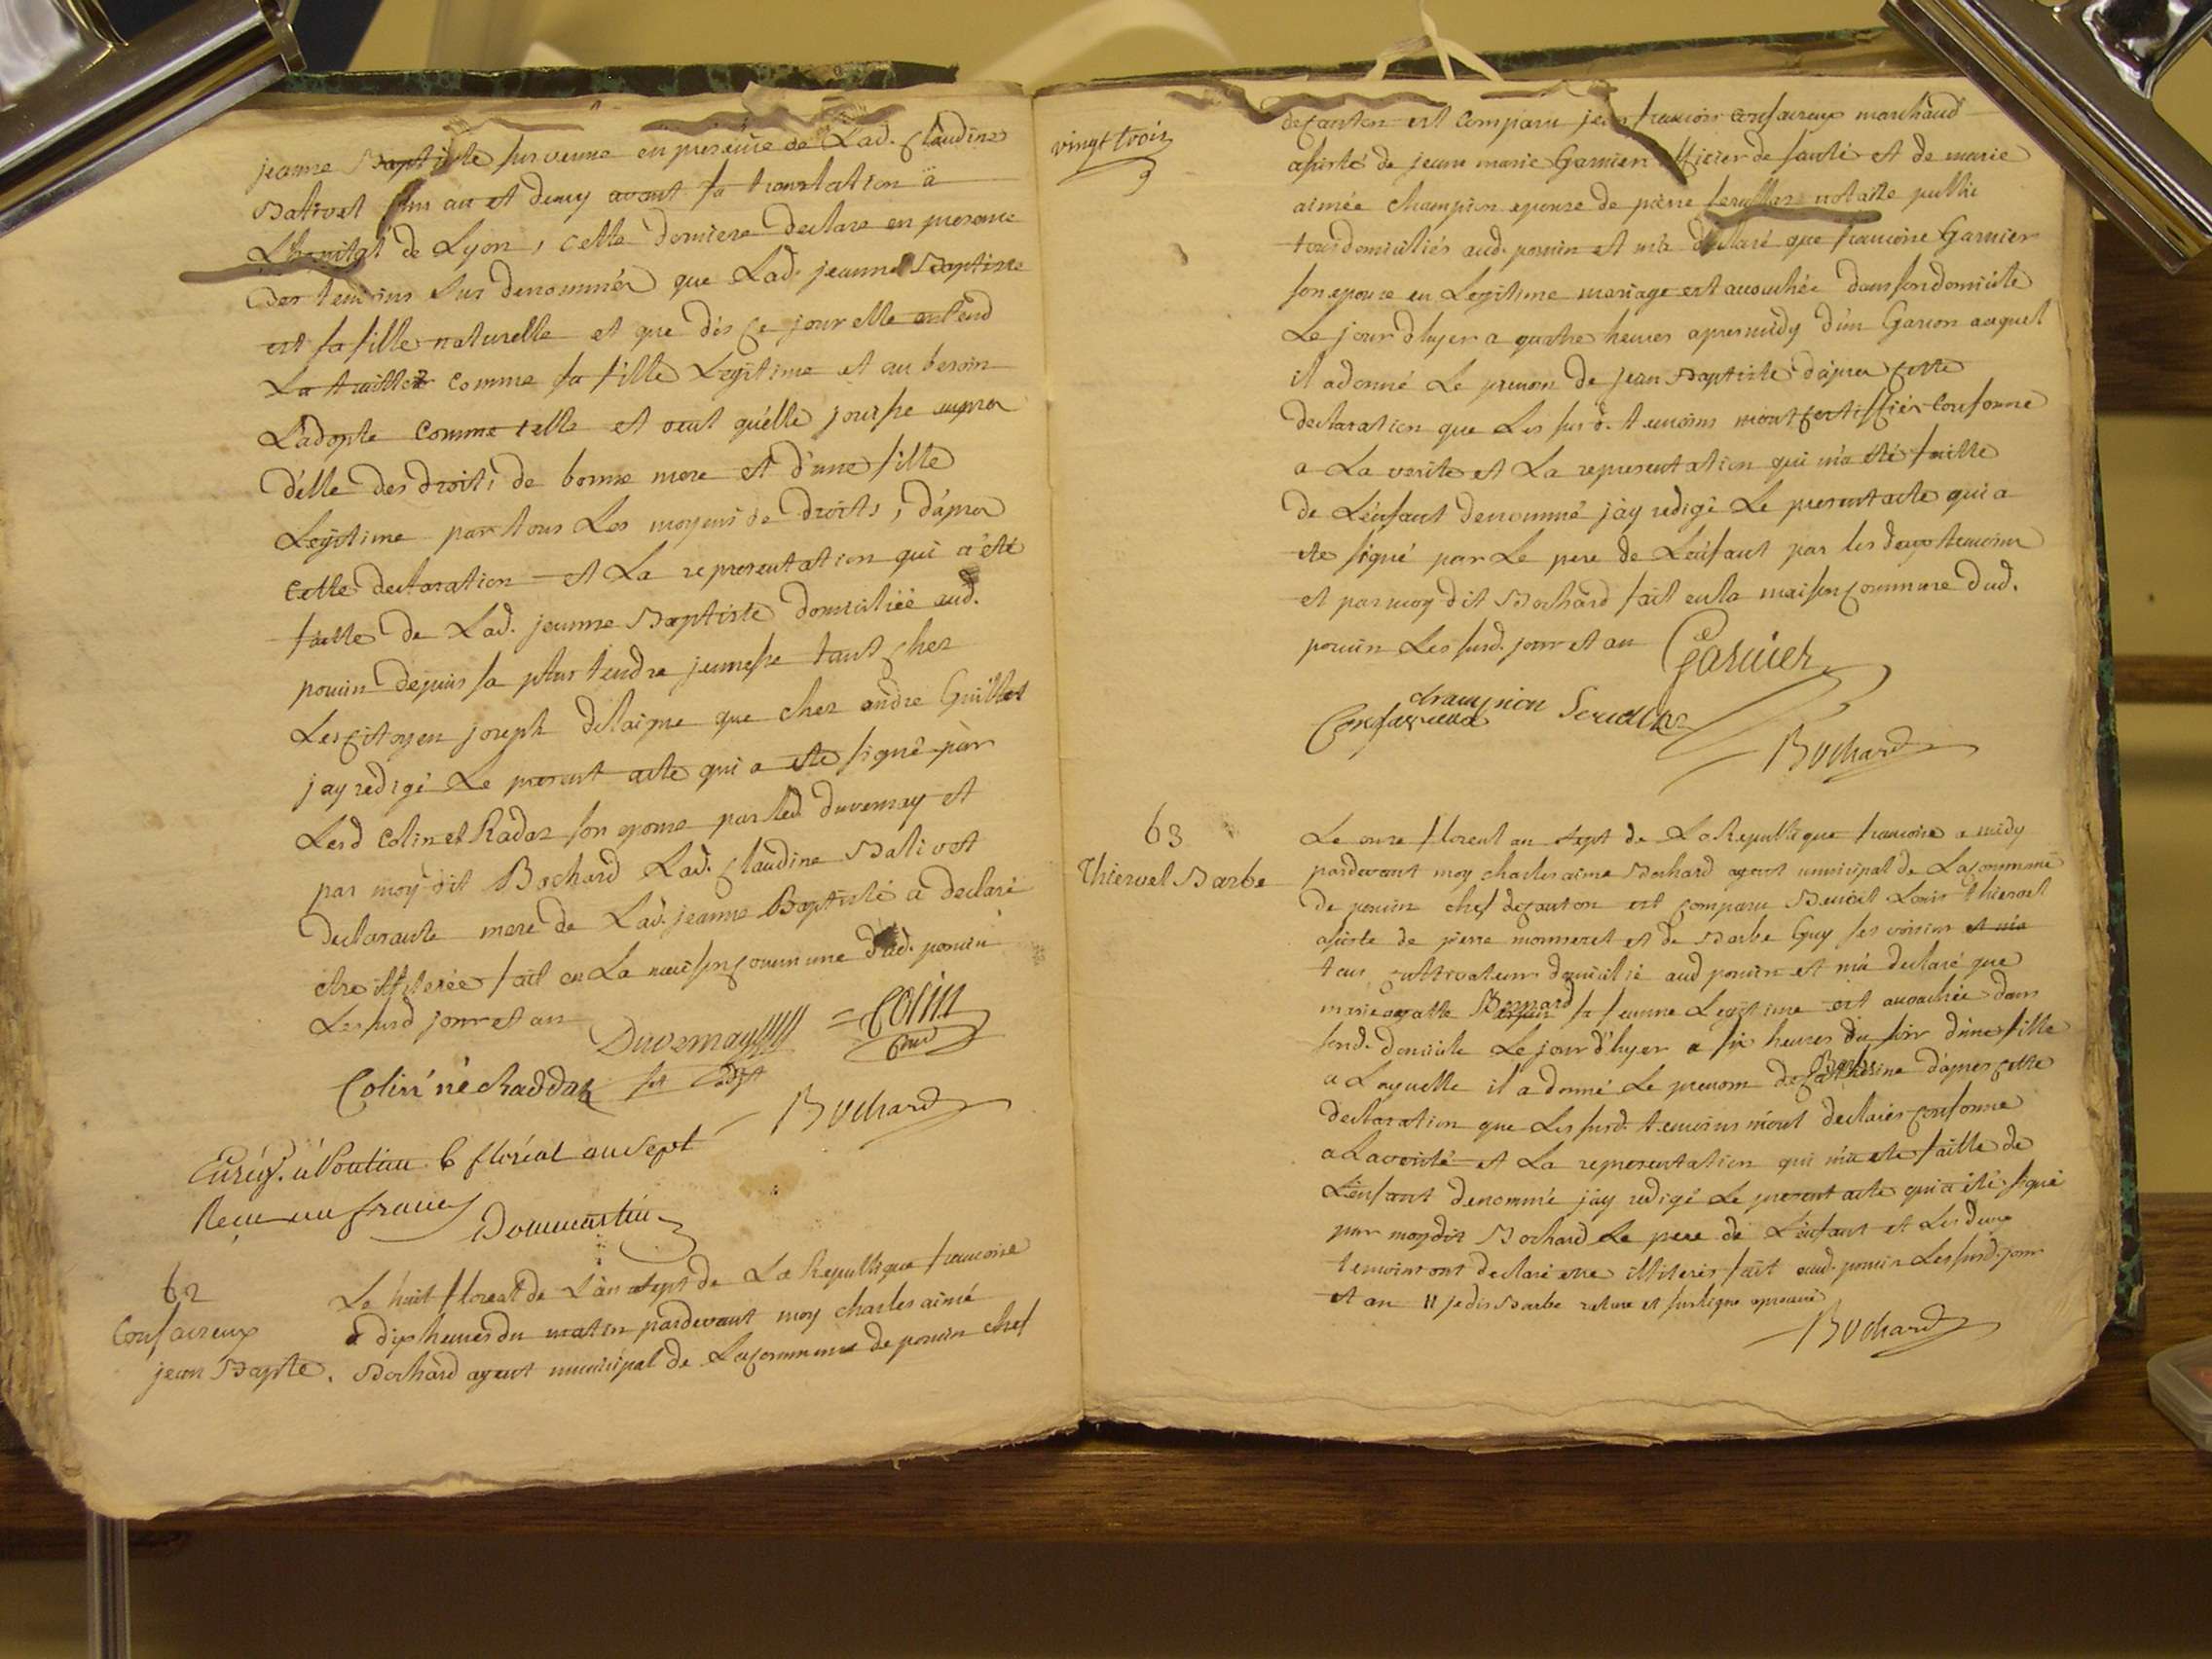 jeanne Baptiste survenue en presence de Lad. Claudine
Balivet un an et demy avant sa translation a
L'hopital de Lyon, cette derniere declare en presence
des temoins sus denommés que Lad. jeanne Baptiste
est sa fille naturelle et que dès ce jour elle entend
La traitter comme sa fille Legitime et au besoin
L'adopte comme telle et veut quelle jouisse aupres
d'elle des droits de bonne mere et d'une fille
Legitime par tous Les moyens de droits, d'apres
cette declaration et La representation qui a été
faitte de Lad. jeanne Baptiste domiciliée aud.
poncin depuis sa plus tendre jeunesse tant chez
Le citoyen joseph delaigue que chez andre Guillot
j'ay redigé Le present acte qui a ete signé par
Lesd Colin et Radaz son epouse par led. duvernay et
par moy dit Bochard Lad. Claudine Balivet
declarante mere de Lad. jeanne Baptiste a declaré
etre illiterée fait en La maison commune dud. poncin
Les susd jour et an
Duvernay = Colin
Colin né chaddaz
Bochard
Enreg. à Poncin 6 floréal an sept
Reçu un franc
Dommartin
62
Confavreux
jean Bapte.
Le huit floreal de L'an sept de La Republique francoise
a dix heures du matin pardevant moy charles aimé
Bochard agent municipal de La commune de poncin chef
vingt trois
de canton est comparu jean francois Confavreux marchand
assisté de jeanne marie Garnier officier de santé et de marie
aimée champion epouse de pierre notaire public
tous domiciliés aud. poncin et m'a declaré que francoise Garnier
son epouse en Legitime mariage est accouchée dans son domicile
Le jour d'hyer a quatre heures apres midy d'un Garcon auquel
il a donné Le prenom de jean Baptiste d'apres cette
declaration que Les susd. temoins m'ont certiffiés conforme
a La verité et La representation qui m'a été faitte
de L'enfant denommé j'ay redigé Le present acte qui a
ete signé par Le pere de L'enfant par les deux temoins
et par moy dit Bochard fait en la maison commune dud.
poncin Les susd. jour et an Garnier
champion
Confavreux
Bochard
63
Thiervel Barbe
Le onze floreal an sept de La Republique francoise a midy
pardevant moy charles aime Bochard agent municipal de La commune
de poncin chef de canton est comparu Benoit Louis thiervel
assiste de pierre monneret et de Barbe Guy ses voisins et m'a
tous cultivateurs domicilié aud poncin et m'a declaré que
marie agatte Bernard sa femme Legitime est accouchée dans
sond. domicile Le jour d'hyer a six heures du soir d'une fille
a Laquelle il a donné Le prenom de Catherine Barbe d'apres cette
declaration que Les susd. temoins m'ont declarés conforme
a La verité et La representation qui m'a ete faitte de
L'enfant denommé j'ay redigé Le present acte qui a été signé
par moy dit Bochard Le pere de L'enfant et Les deux
temoins ont declaré etre illiterés fait aud. poncin Les susd. jour
et an 11 je dis Barbe rature et surligne aprouvé
Bochard